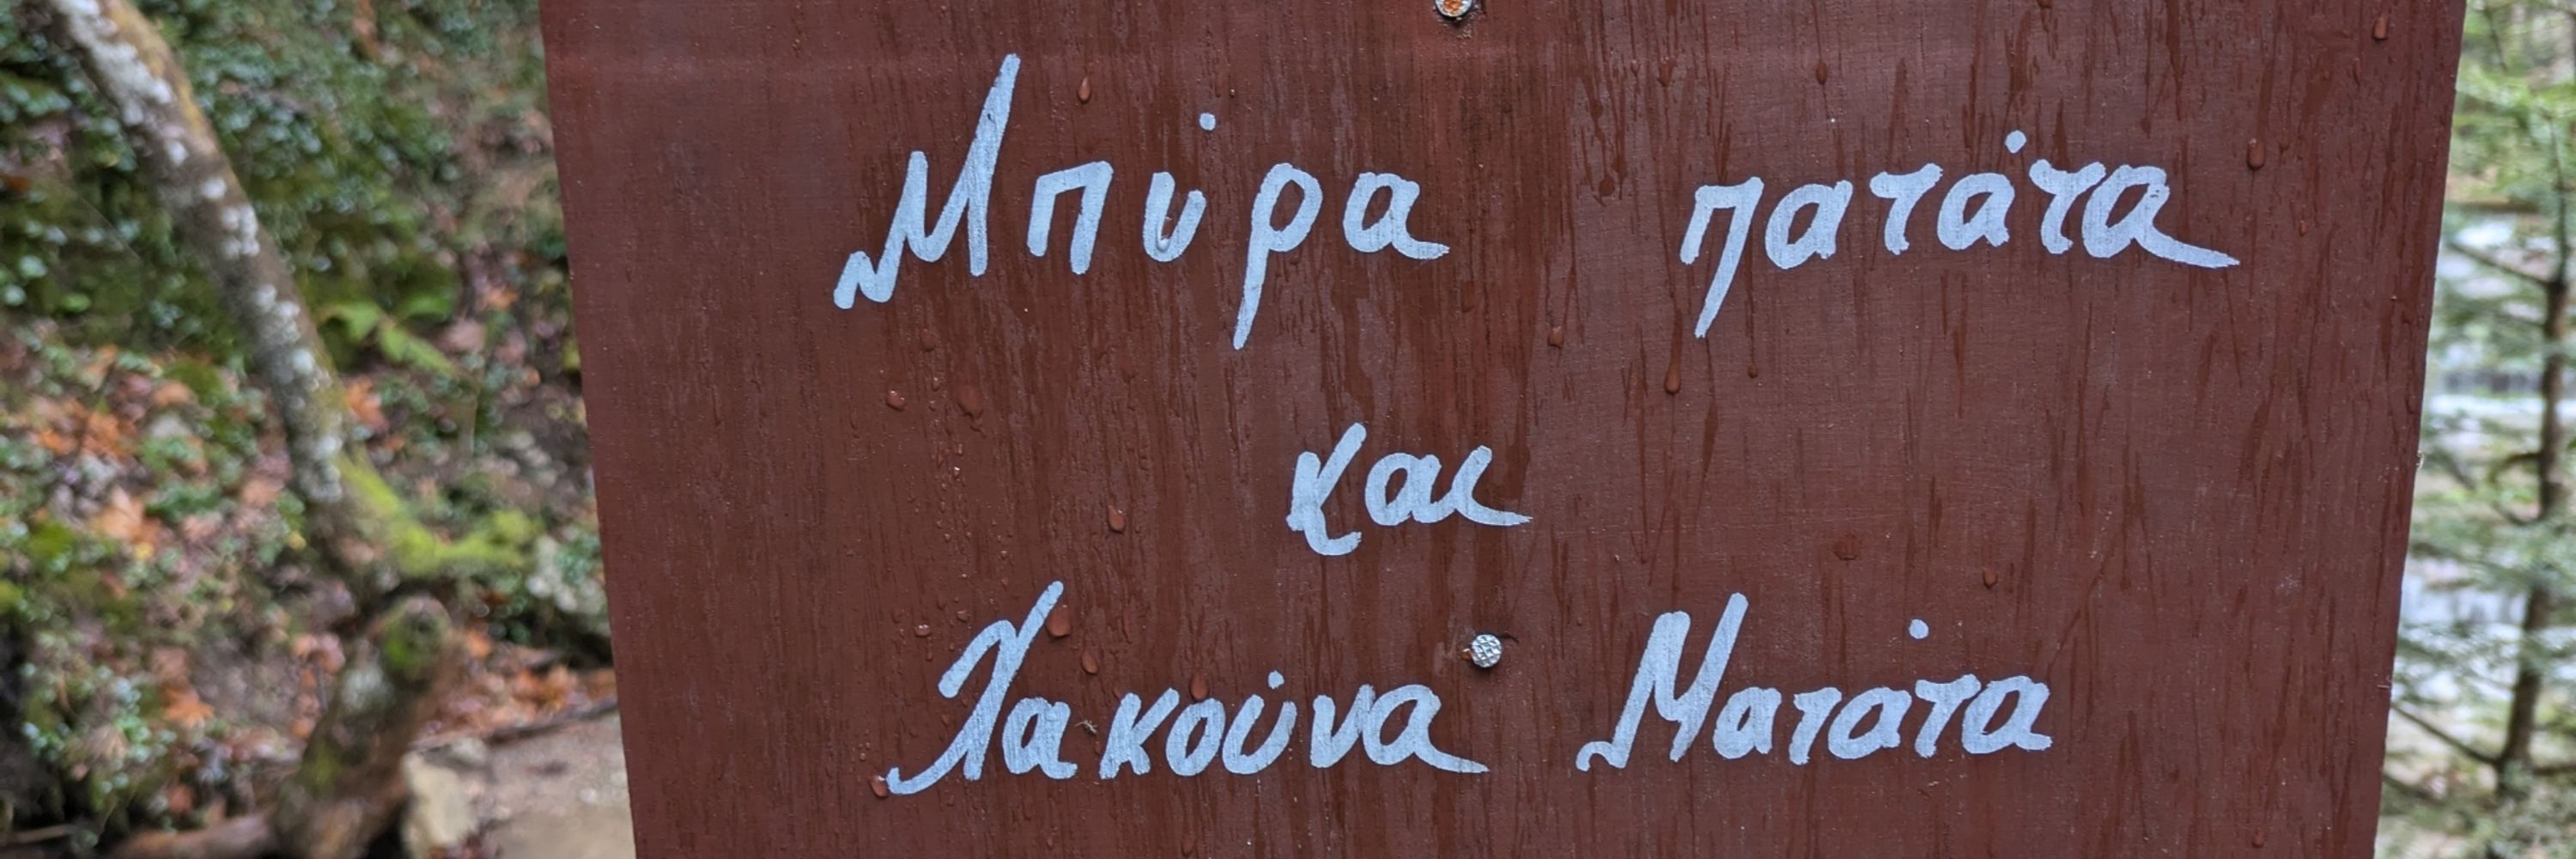 Μπύρα πατάτα
και
Χακούνα Ματάτα